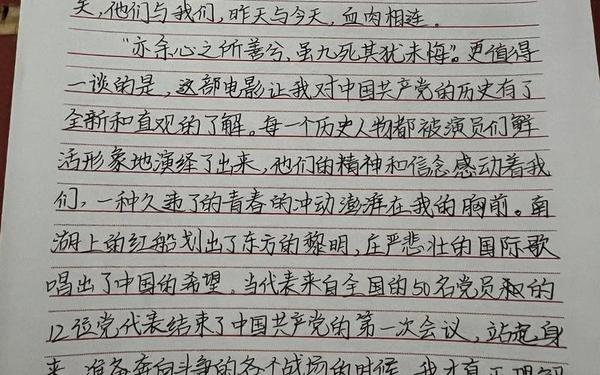 关，他们与我们，昨天与今天，血肉相连。
“亦余心之所善兮，虽九死其犹未悔”。更值得
一谈的是，这部电影让我对中国共产党的历史有了
全新和直观的了解。每一个历史人物都被演员们鲜
活形象地演绎了出来，他们的精神和信念感动着我
们，一种久违了的青春的冲动澎湃在我的胸前。南
湖上的红船划出了东方的黎明，庄严悲壮的国际歌
唱出了中国的希望，当代表来自全国的50名党员的
12位党代表结束了中国共产党的第一次会议，站起身
来，准备奔向斗争的各个战场的时候，我才真正理解